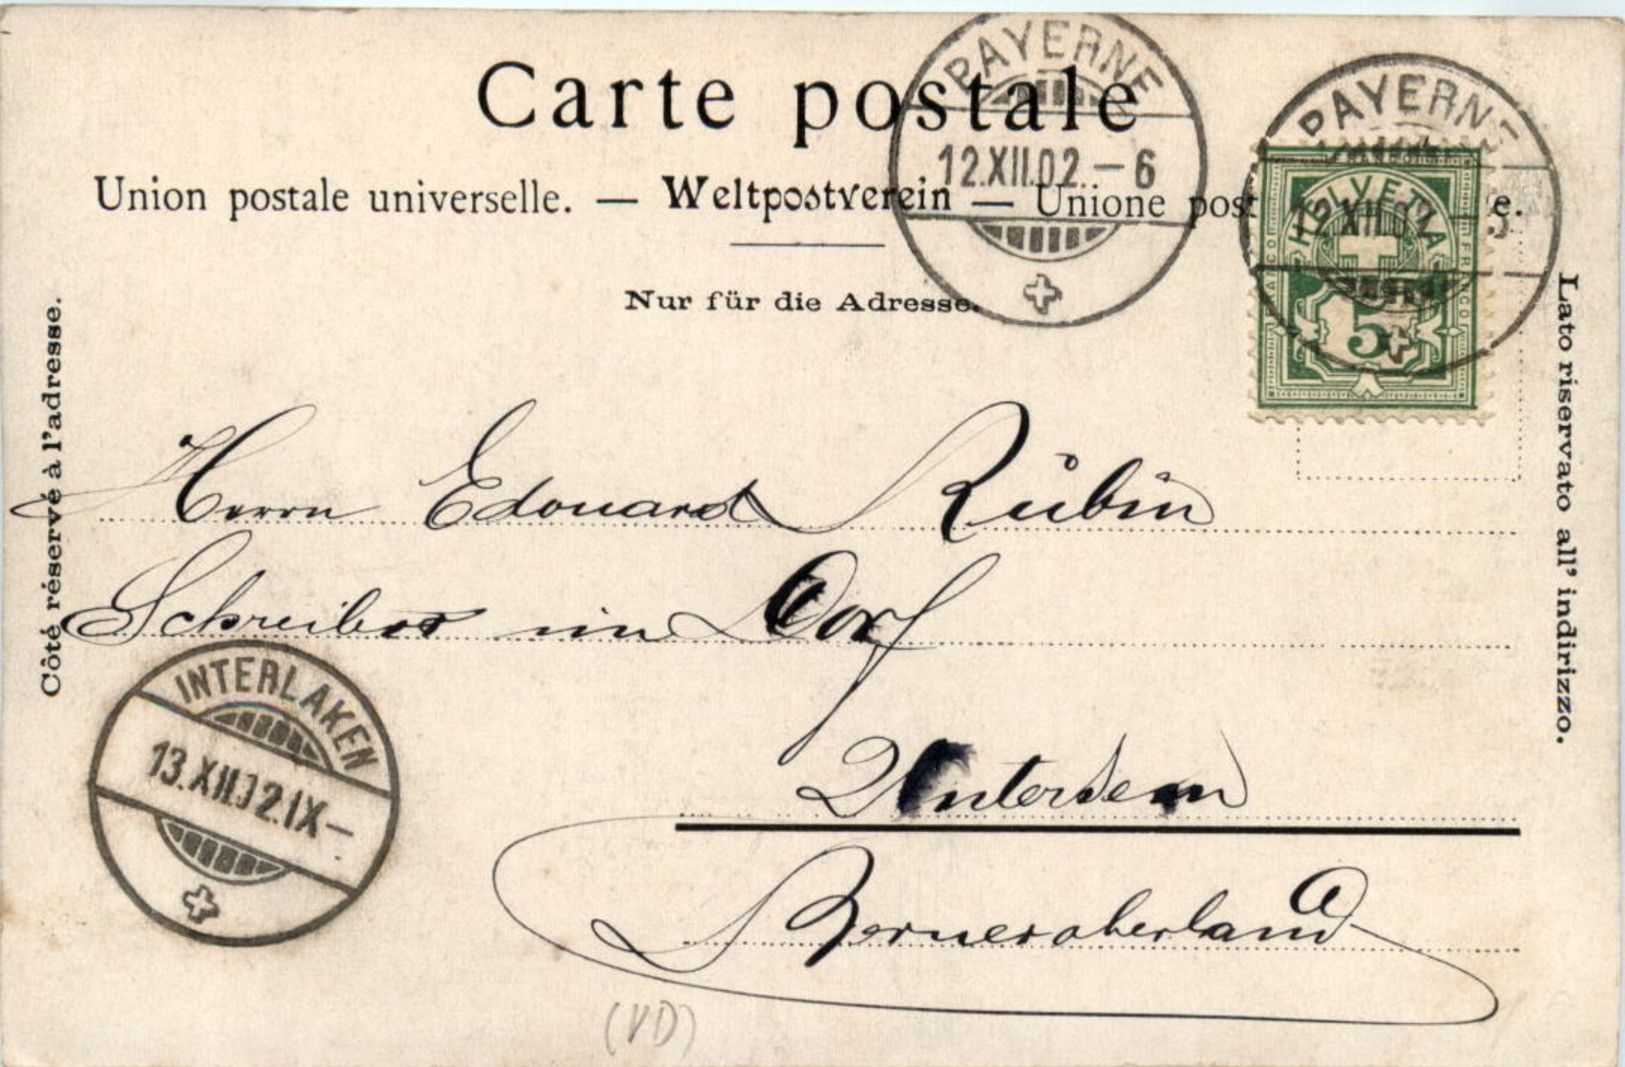 Carte postale
PAYERNE
12.XII.02.–6
PAYERNE
12.XII.02
Union postale universelle. — Weltpostverein — Unione post e.
HELVETIA
FRANCO
5
Nur für die Adresse.
Côté réservé à l'adresse.
Lato riservato all' indirizzo.
Herrn Edouard Rubin
Schreiber im Dorf
Unterseen
Berneroberland
INTERLAKEN
13.XII.02.IX–
(VD)